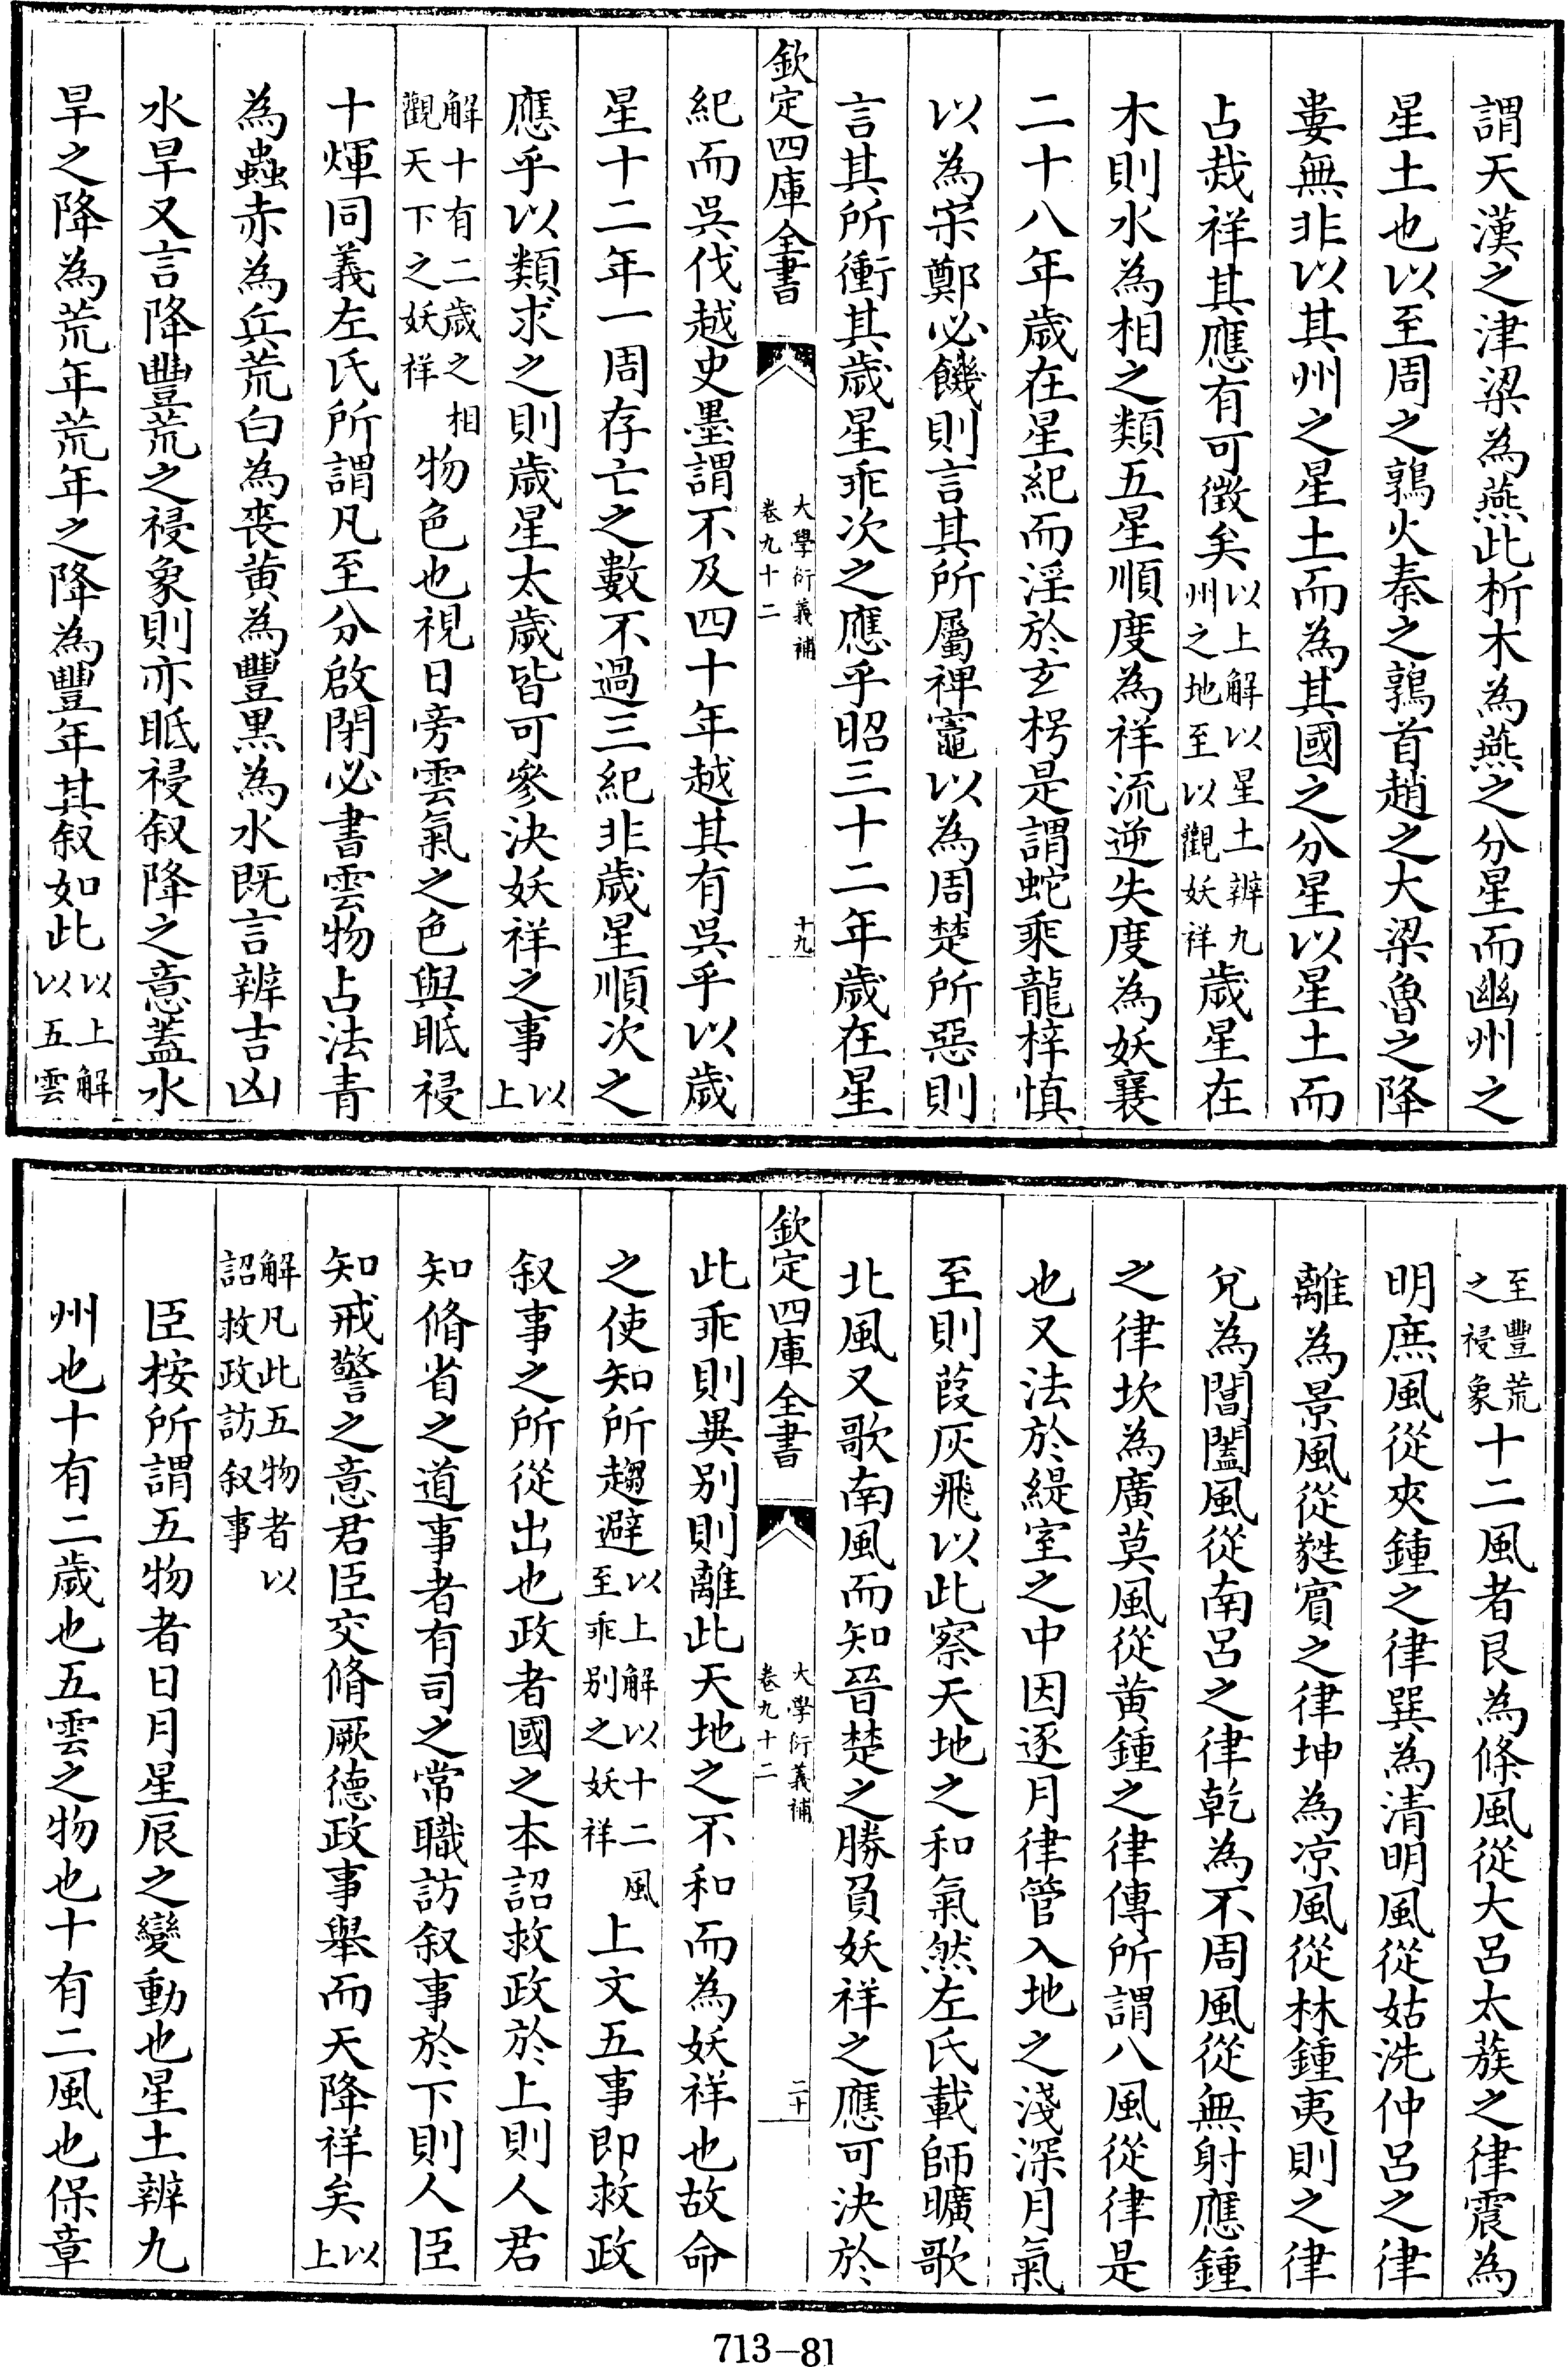 謂天漢之津梁為燕此析木為燕之分星而幽州之
星土也以至周之鶉火秦之鶉首趙之大梁魯之降
婁無非以其州之星土而為其國之分星以星土而
占烖祥其應有可徵矣以上解以星土辨九州之地至以觀妖祥歲星在
木則水為相之類五星順度為祥流逆失度為妖襄
二十八年歲在星紀而淫於玄枵是謂蛇乘龍梓慎
以為宋鄭必饑則言其所屬禆竈以為周楚所惡則
言其所衝其歲星乖次之應乎昭三十二年歲在星
欽定四庫全書 大學衍義補 卷九十二 十九
紀而吳伐越史墨謂不及四十年越其有吳乎以歲
星十二年一周存亡之數不過三紀非歲星順次之
應乎以類求之則歲星太歲皆可參決妖祥之事以上
解十有二歲之相觀天下之妖祥物色也視日旁雲氣之色與眡祲
十煇同義左氏所謂凡至分啟閉必書雲物占法青
為蟲赤為兵荒白為喪黄為豐黑為水既言辨吉凶
水旱又言降豐荒之祲象則亦眡祲叙降之意蓋水
旱之降為荒年荒年之降為豐年其叙如此以上解以五雲
至豐荒之祲象十二風者艮為條風從大呂太蔟之律震為
明庶風從夾鍾之律巽為清明風從姑洗仲呂之律
離為景風從蕤賓之律坤為凉風從林鍾夷則之律
兌為閶闔風從南呂之律乾為不周風從無射應鍾
之律坎為廣莫風從黄鍾之律傳所謂八風從律是
也又法於緹室之中因逐月律管入地之淺深月氣
至則葭灰飛以此察天地之和氣然左氏載師曠歌
北風又歌南風而知晉楚之勝負妖祥之應可決於
欽定四庫全書 大學衍義補 卷九十二 二十
此乖則異别則離此天地之不和而為妖祥也故命
之使知所趨避以上解以十二風至乖别之妖祥上文五事即救政
叙事之所從出也政者國之本詔救政於上則人君
知脩省之道事者有司之常職訪叙事於下則人臣
知戒警之意君臣交脩厥德政事舉而天降祥矣以上
解凡此五物者以詔救政訪叙事
臣按所謂五物者日月星辰之變動也星土辨九
州也十有二歲也五雲之物也十有二風也保章
713-81